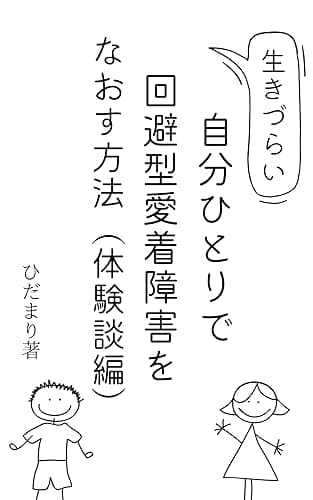 生きづらい
自分ひとりで
回避型愛着障害を
なおす方法（体験談編）
ひだまり著